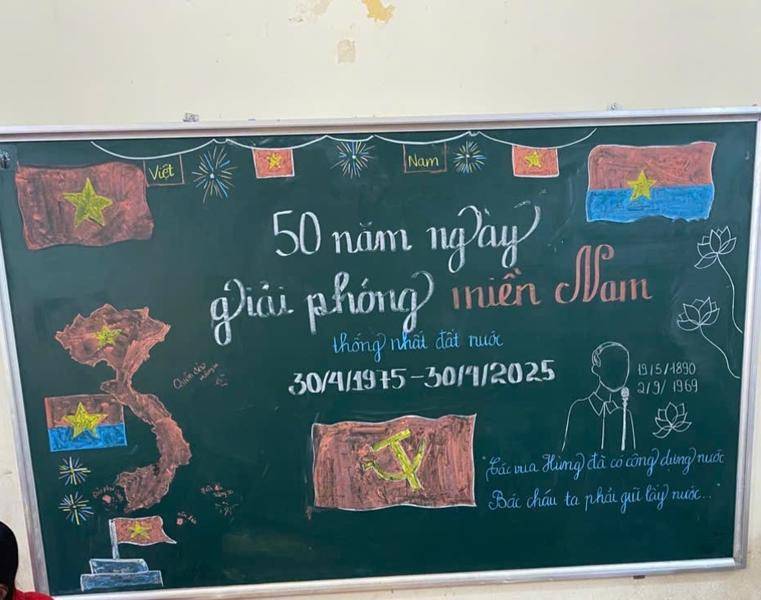 Việt
Nam
50 năm ngày
giải phóng miền Nam
thống nhất đất nước
30/4/1975-30/4/2025
19/5/1890
2/9/1969
"Các vua Hùng đã có công dựng nước
Bác cháu ta phải giữ lấy nước...